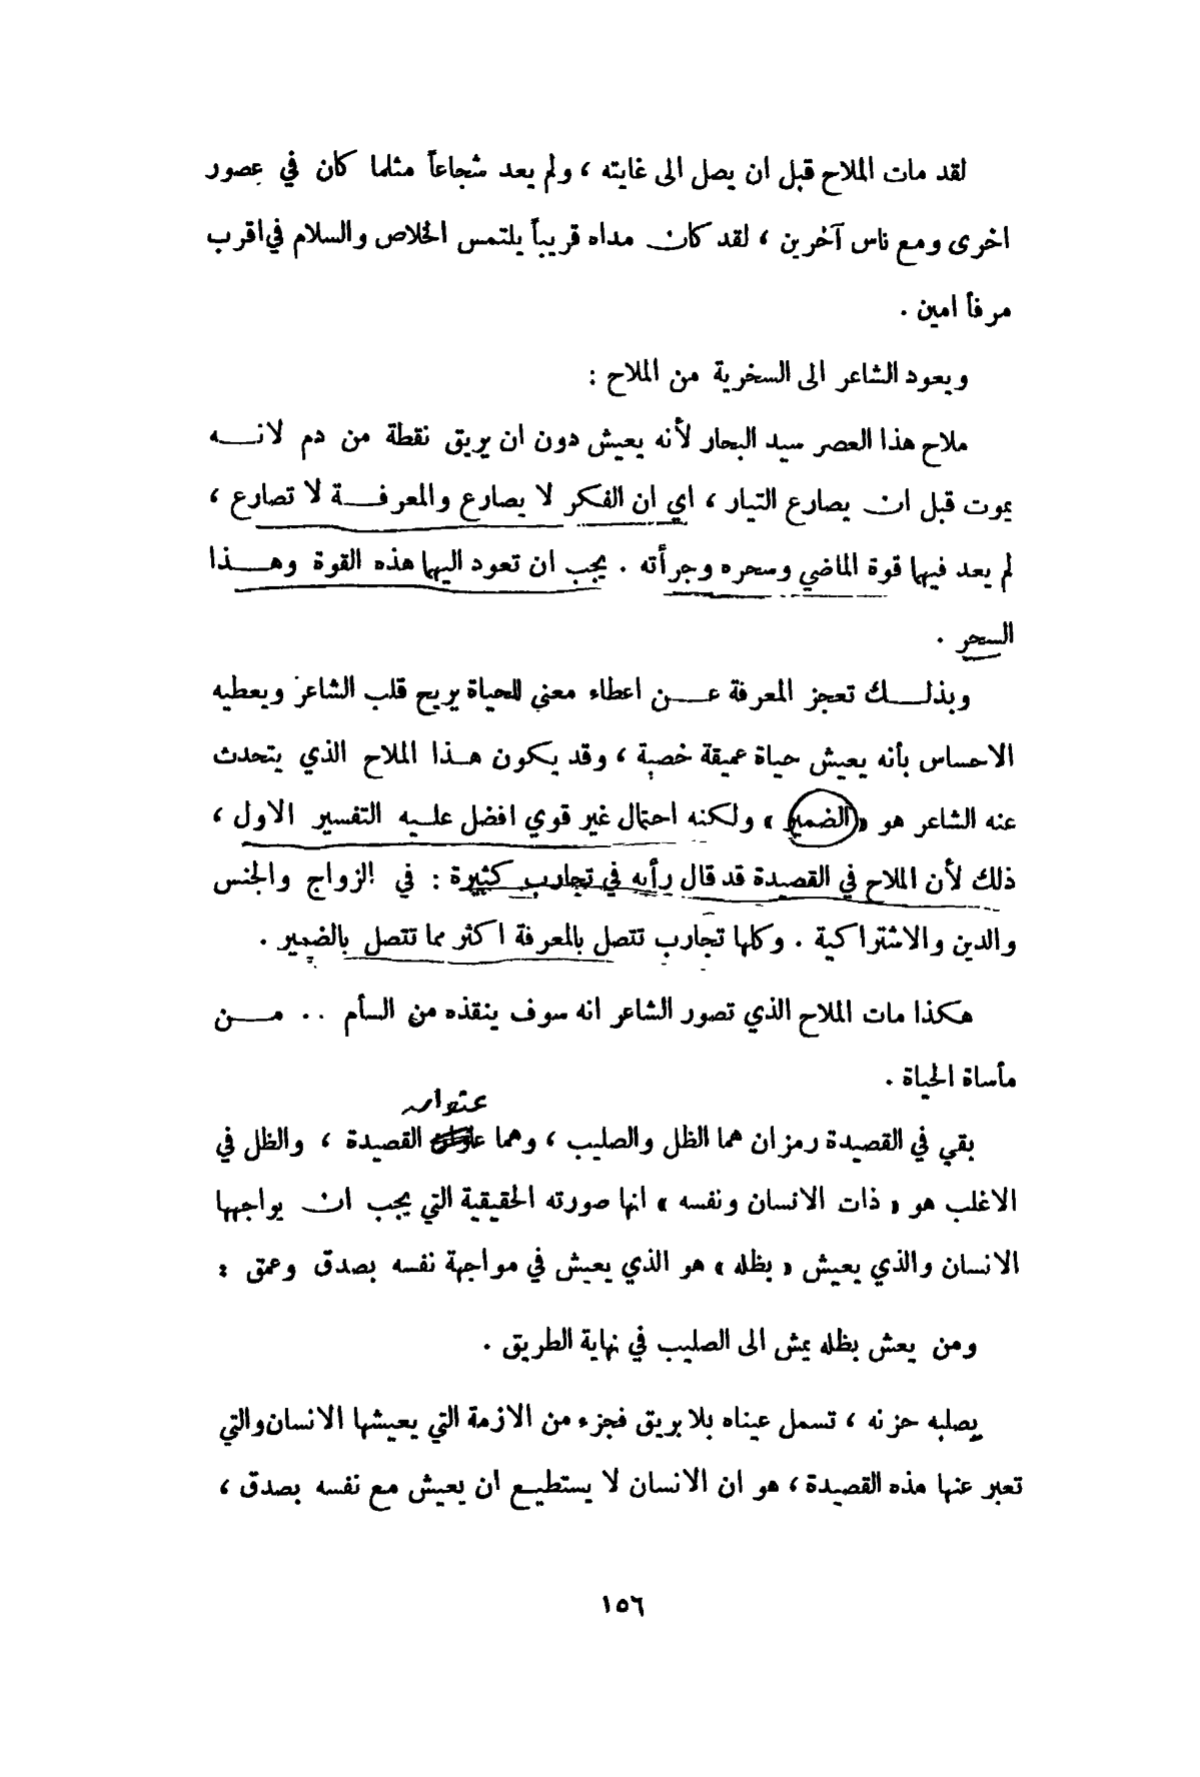 لقد مات الملاح قبل ان يصل الى غايته ، ولم يعد شجاعاً مثلما كان في عصور
اخرى ومع ناس آخرين ، لقد كان مداه قريباً يلتمس الخلاص والسلام في اقرب
مرفأ امين .
ويعود الشاعر الى السخرية من الملاح :
ملاح هذا العصر سيد البحار لأنه يعيش دون ان يريق نقطة من دم لانه
يموت قبل ان يصارع التيار ، اي ان الفكر لا يصارع والمعرفة لا تصارع ،
لم يعد فيها قوة الماضي وسحره وجرأته . يجب ان تعود اليها هذه القوة وهذا
السحر .
وبذلك تعجز المعرفة عن اعطاء معني للحياة يريح قلب الشاعر ويعطيه
الاحساس بأنه يعيش حياة عميقة خصبة ، وقد يكون هذا الملاح الذي يتحدث
عنه الشاعر هو « الضمير » ولكنه احتمال غير قوي افضل عليه التفسير الاول ،
ذلك لأن الملاح في القصيدة قد قال رأيه في تجارب كثيرة : في الزواج والجنس
والدين والاشتراكية . وكلها تجارب تتصل بالمعرفة اكثر مما تتصل بالضمير .
هكذا مات الملاح الذي تصور الشاعر انه سوف ينقذه من السأم . . من
مأساة الحياة .
عنوان
بقي في القصيدة رمزان هما الظل والصليب ، وهما القصيدة ، والظل في
الاغلب هو « ذات الانسان ونفسه » انها صورته الحقيقية التي يجب ان يواجهها
الانسان والذي يعيش « بظله » هو الذي يعيش في مواجهة نفسه بصدق وعمق :
ومن يعش بظله يمش الى الصليب في نهاية الطريق .
يصلبه حزنه ، تسمل عيناه بلا بريق فجزء من الازمة التي يعيشها الانسان والتي
تعبر عنها هذه القصيدة ، هو ان الانسان لا يستطيع ان يعيش مع نفسه بصدق ،
١٥٦